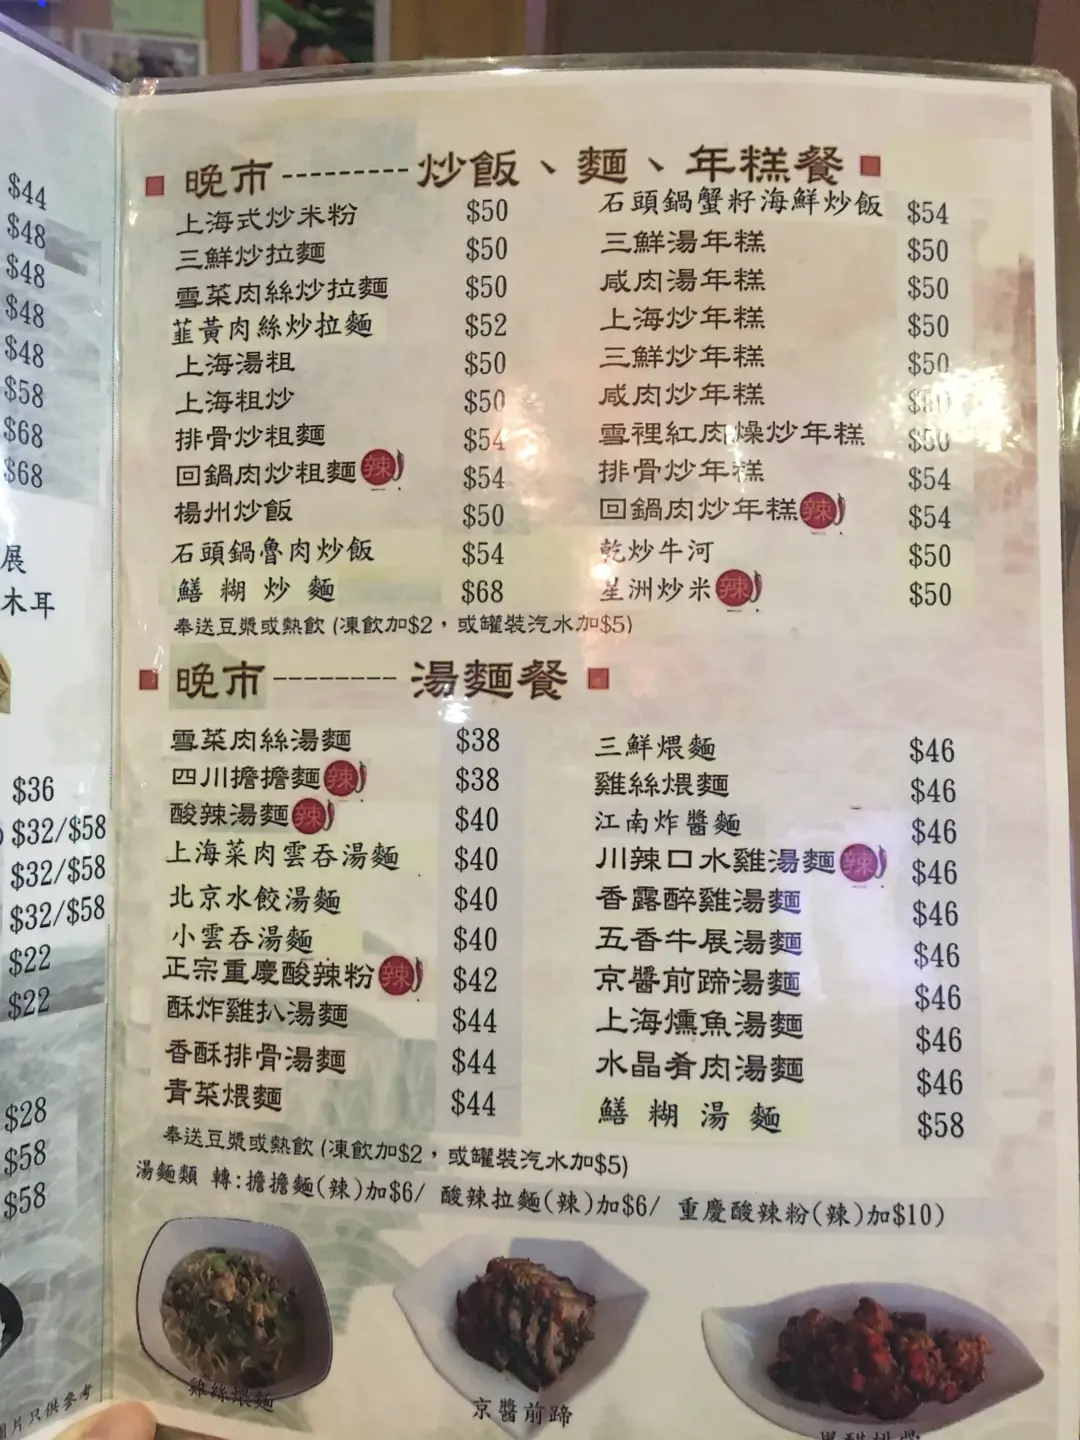 $44
$48
$48
$48
$48
$58
$68
$68
展
木耳
$36
$32/$58
$32/$58
$32/$58
$22
$22
$28
$58
$58
片只供參考
晚市---------炒飯、麵、年糕餐
上海式炒米粉 $50
三鮮炒拉麵 $50
雪菜肉絲炒拉麵 $50
韮黃肉絲炒拉麵 $52
上海湯粗 $50
上海粗炒 $50
排骨炒粗麵 $54
回鍋肉炒粗麵 辣 $54
楊州炒飯 $50
石頭鍋魯肉炒飯 $54
鱔糊炒麵 $68
石頭鍋蟹籽海鮮炒飯 $54
三鮮湯年糕 $50
咸肉湯年糕 $50
上海炒年糕 $50
三鮮炒年糕 $50
咸肉炒年糕
雪裡紅肉燥炒年糕 $50
排骨炒年糕 $54
回鍋肉炒年糕 辣 $54
乾炒牛河 $50
星洲炒米 辣 $50
奉送豆漿或熱飲 (凍飲加$2，或罐裝汽水加$5)
晚市--------湯麵餐
雪菜肉絲湯麵 $38
四川擔擔麵 辣 $38
酸辣湯麵 辣 $40
上海菜肉雲吞湯麵 $40
北京水餃湯麵 $40
小雲吞湯麵 $40
正宗重慶酸辣粉 辣 $42
酥炸雞扒湯麵 $44
香酥排骨湯麵 $44
青菜煨麵 $44
三鮮煨麵 $46
雞絲煨麵 $46
江南炸醬麵 $46
川辣口水雞湯麵 辣 $46
香露醉雞湯麵 $46
五香牛展湯麵 $46
京醬前蹄湯麵 $46
上海燻魚湯麵 $46
水晶肴肉湯麵 $46
鱔糊湯麵 $58
奉送豆漿或熱飲 (凍飲加$2，或罐裝汽水加$5)
湯麵類 轉:擔擔麵(辣)加$6/ 酸辣拉麵(辣)加$6/ 重慶酸辣粉(辣)加$10)
雞絲煨麵
京醬前蹄